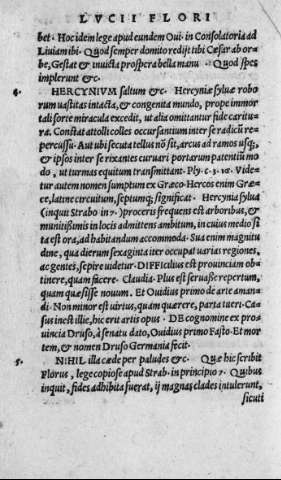 LVCII FLORI
bet. Hoc idem lege apud eundem Oui. in Consolatoria ad
Liuiam ibi. Quod semper domito redijt tibi Cæsar ab or-
be, Gestat & inuicta prospera bella manu. Quod spes
implerunt &c.
4. HERCYNIVM saltum &c. Hercyniæ syluæ robo
rum uastitas intacta, & congenita mundo, prope immor
tali sorte miracula excedit, ut alia omittantur fide caritu-
ra. Constat attolli colles occursantium inter se radicũ re-
percussu. Aut ubi secuta tellus nõ sit, arcus ad ramos usq;
& ipsos inter se rixantes curuari portarum patentiũ mo
do, ut turmas equitum transmittant. Ply. c. 3. 16. Vide-
tur autem nomen sumptum ex Græco. Hercos enim Græ-
ce, latine circuitum, septumq; significat. Hercynia sylua
(inquit Strabo in 7.) proceris frequens est arboribus, &
munitißimis in locis admittens ambitum, in cuius medio si
ta est ora, ad habitandum accommoda. Sua enim magnitu
dine, qua dierum sexaginta iter occupat uarias regiones,
ac gentes, sepire uidetur. DIFFICilius est prouinciam obti
nere, quam facere. Claudia. Plus est seruasse repertum,
quam quæsisse nouum. Et Ouidius primo de arte aman-
di. Non minor est uirtus, quam quærere, parta tueri. Ca-
sus inest illic, hic erit artis opus. DE cognomine ex pro-
uincia Druso, à senatu dato, Ouidius primo Fasto. Et mor
tem, & nomen Druso Germania fecit.
5. NIHIL illa cæde per paludes &c. Quæ hic scribit
Florus, lege copiose apud Strab. in principio 7. Quibus
inquit, fides adhibita fuerat, ij magnas clades intulerunt,
sicuti